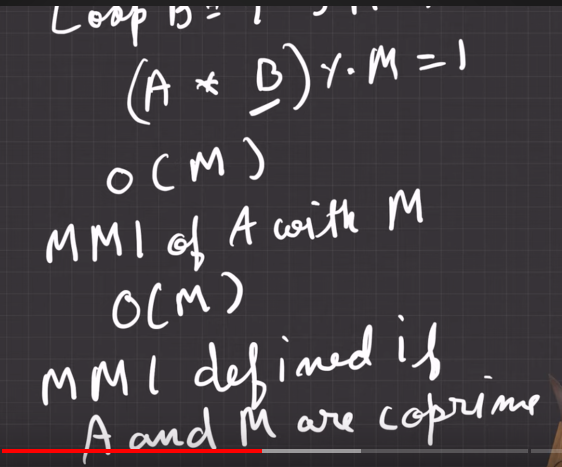 Loop B = 1
(A * B) % M = 1
O(M)
MMI of A with M
O(M)
MMI defined if
A and M are coprime